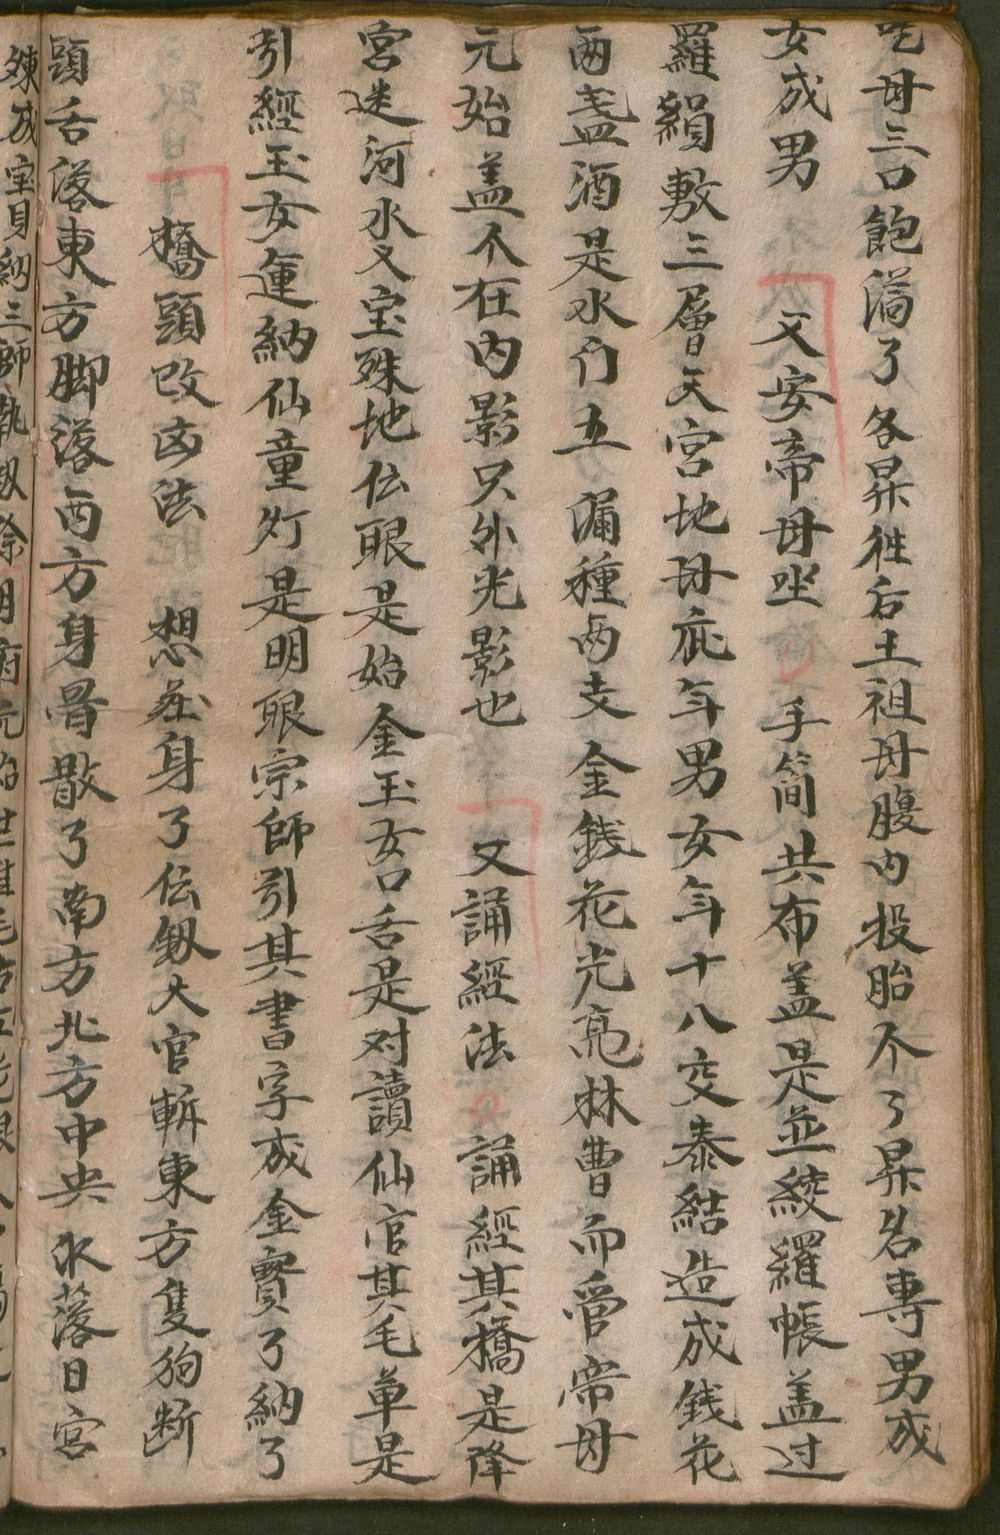 吃母三口飽滿了各昇徃后土祖母腹内投胎不了昇名專男成
女成男 又安帝母坐 手简共布盖是並綾羅帳盖过
羅絹敷三層天宮地母庇年男女年十八交泰結造成銭花
両盞酒是水门五 漏種両支金銭花光亮林曹而管帝母
元始盖不在内影只外光影也 又誦經法 誦經其橋是降
宮迷河水又宝殊地伝眼是始金玉女口舌是对讀仙官其毛单是
引經玉女運納仙童灯是明眼宗師引其書字成金寳了納了
橋頭改凶法 想茲身了伝釼大官斬東方隻狗断
頭舌落東方脚落西方身骨散了南方北方中央 氷落日宮
煉成宝貝納三師執釼除